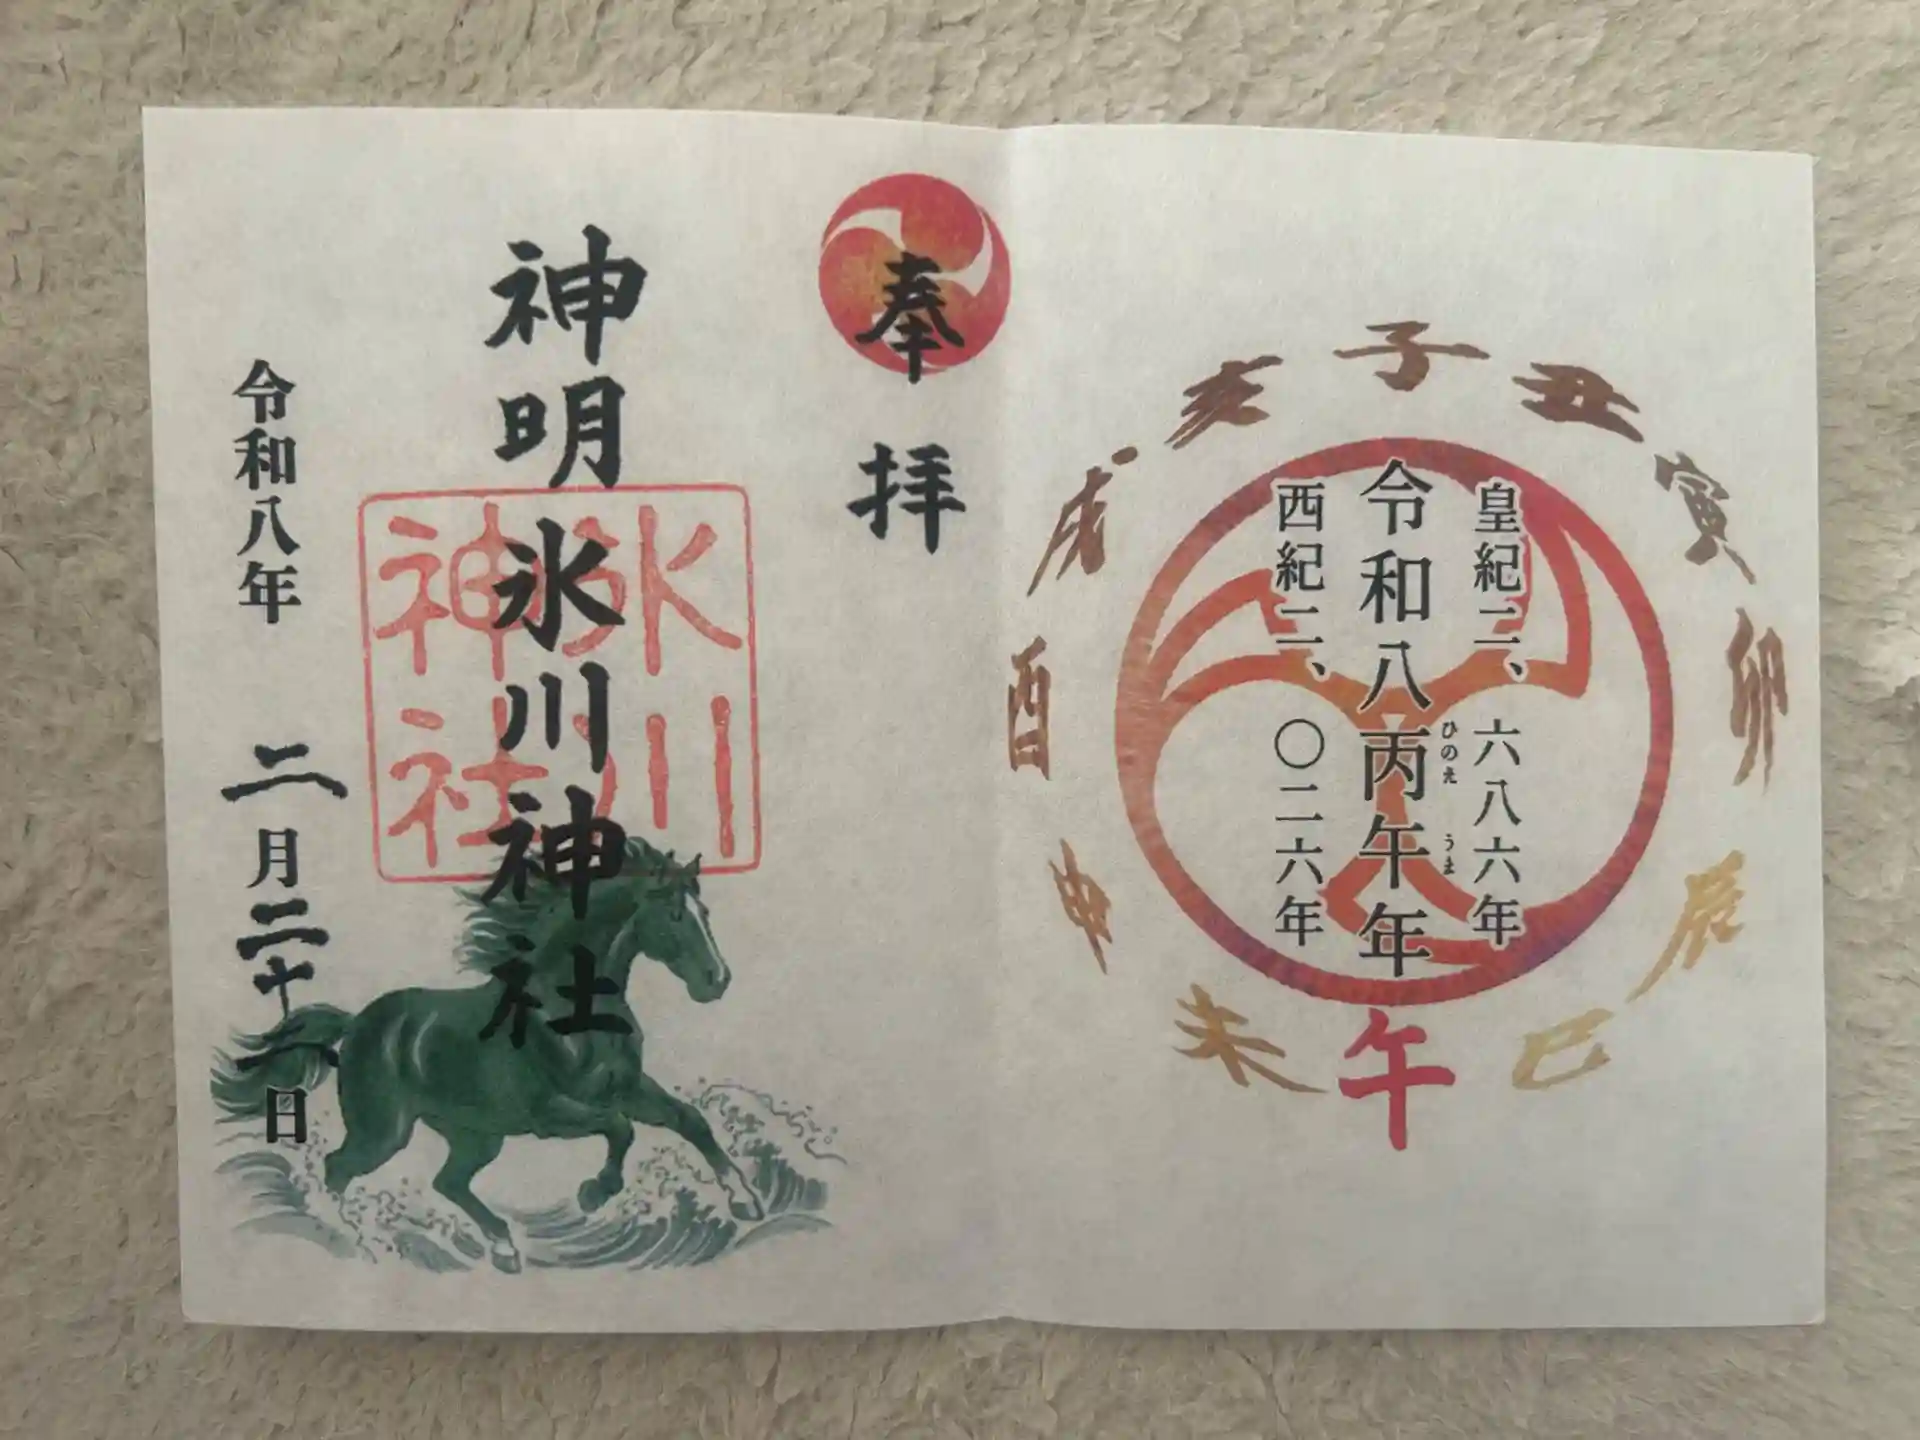 子
丑
寅
卯
辰
巳
午
未
申
酉
戌
亥
皇紀二、六八六年
令和八丙午年
ひのえ うま
西紀二、〇二六年
奉拝
神明氷川神社
氷川
神社
令和八年 二月二十一日